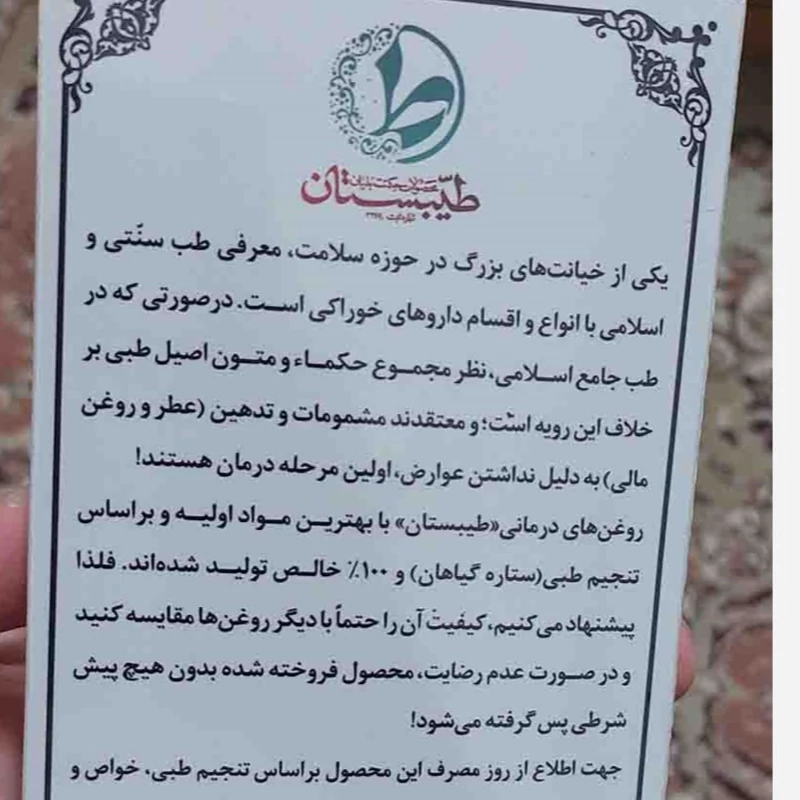 طیّبستان
یکی از خیانت‌های بزرگ در حوزه سلامت، معرفی طب سنّتی و
اسلامی با انواع و اقسام داروهای خوراکی است. درصورتی که در
طب جامع اسلامی، نظر مجموع حکماء و متون اصیل طبی بر
خلاف این رویه است؛ و معتقدند مشمومات و تدهین (عطر و روغن
مالی) به دلیل نداشتن عوارض، اولین مرحله درمان هستند!
روغن‌های درمانی «طیبستان» با بهترین مواد اولیه و براساس
تنجیم طبی (ستاره گیاهان) و ۱۰۰٪ خالص تولید شده‌اند. فلذا
پیشنهاد می‌کنیم، کیفیت آن را حتماً با دیگر روغن‌ها مقایسه کنید
و در صورت عدم رضایت، محصول فروخته شده بدون هیچ پیش
شرطی پس گرفته می‌شود!
جهت اطلاع از روز مصرف این محصول براساس تنجیم طبی، خواص و